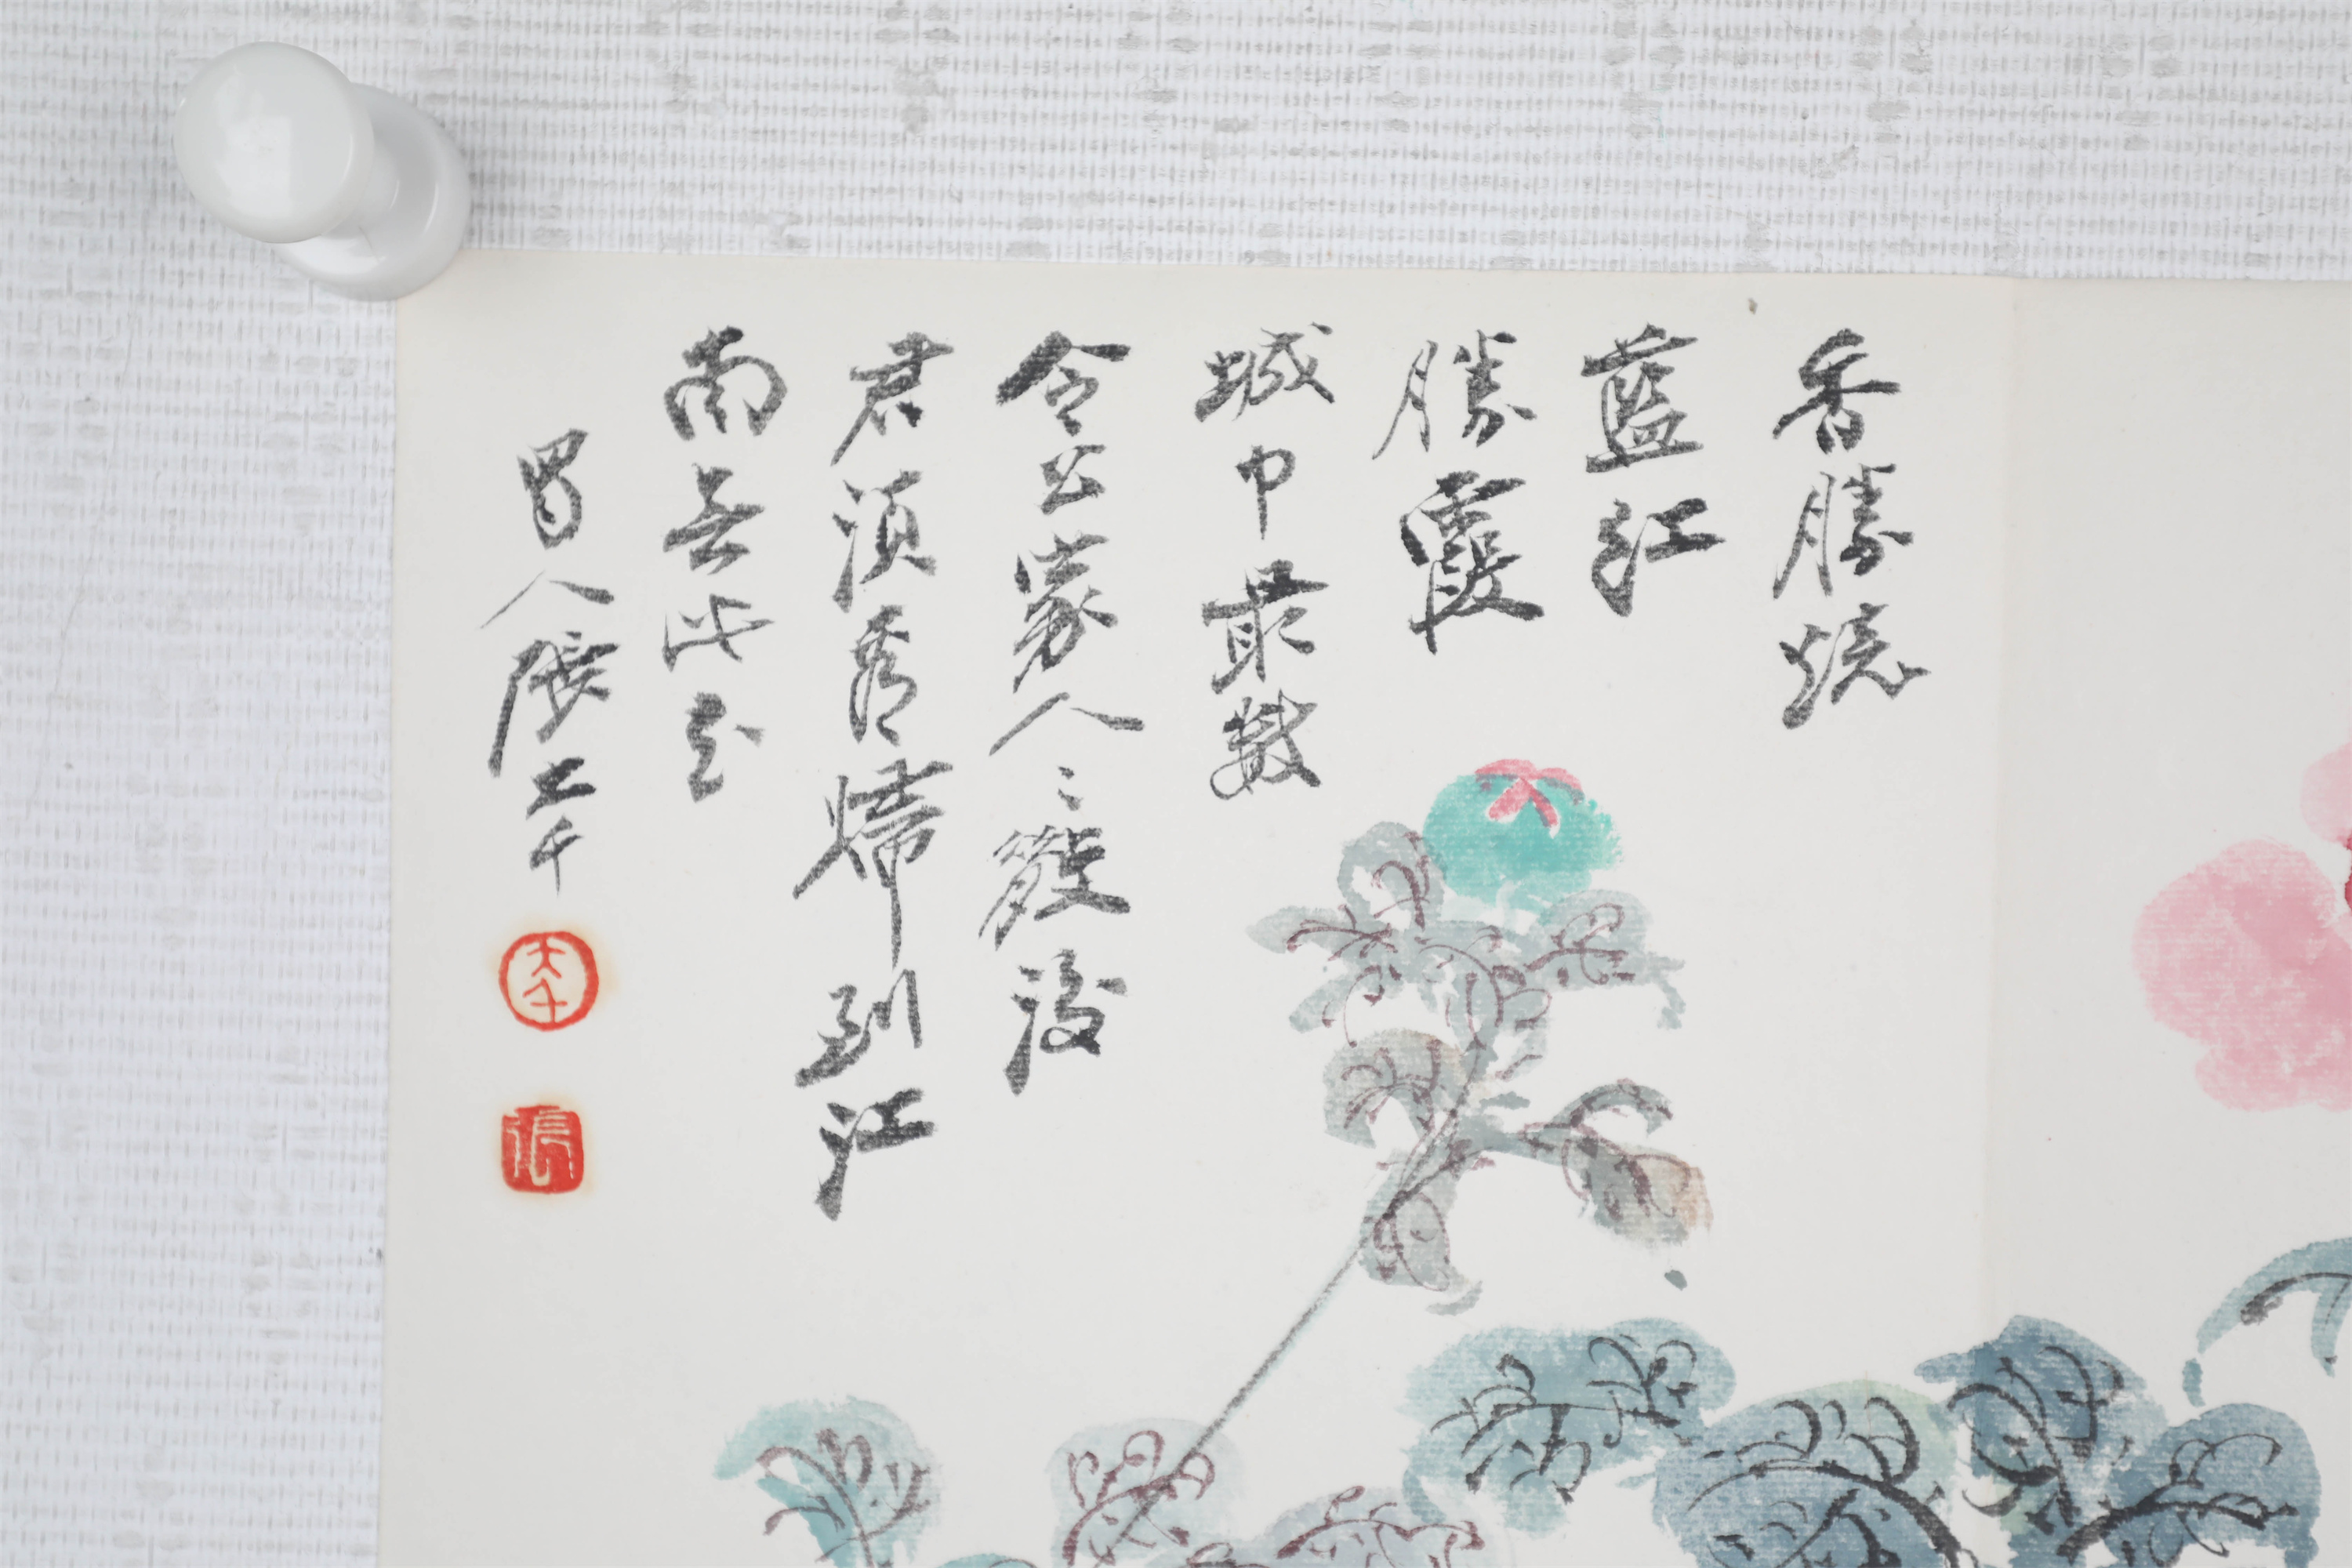 香勝燒
藍紅
勝霞
城中最數
令公家人〻散後
君須看歸到江
南無此花
蜀人張大千
大千
張